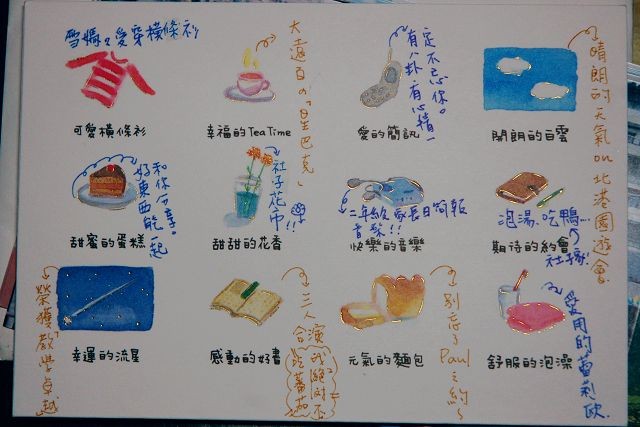 雪媽ㄉ愛穿橫條衫
可愛橫條衫
大遠百の「星巴克」
幸福的TeaTime
有八卦、有心情一
定不忘你。
愛的簡訊
晴朗的天氣 on 北港園遊會
開朗的白雲
好東西能一起
和你分享。
甜蜜的蛋糕
社子花市!!
甜甜的花香
二年級 家長日簡報
音樂!!
快樂的音樂
泡湯、吃鴨…
期待的約會
榮獲教學卓越
幸運的流星
三人演
感動的好書
別忘了Paul之約~
元氣的麵包
愛用的蕾莉歐
舒服的泡澡